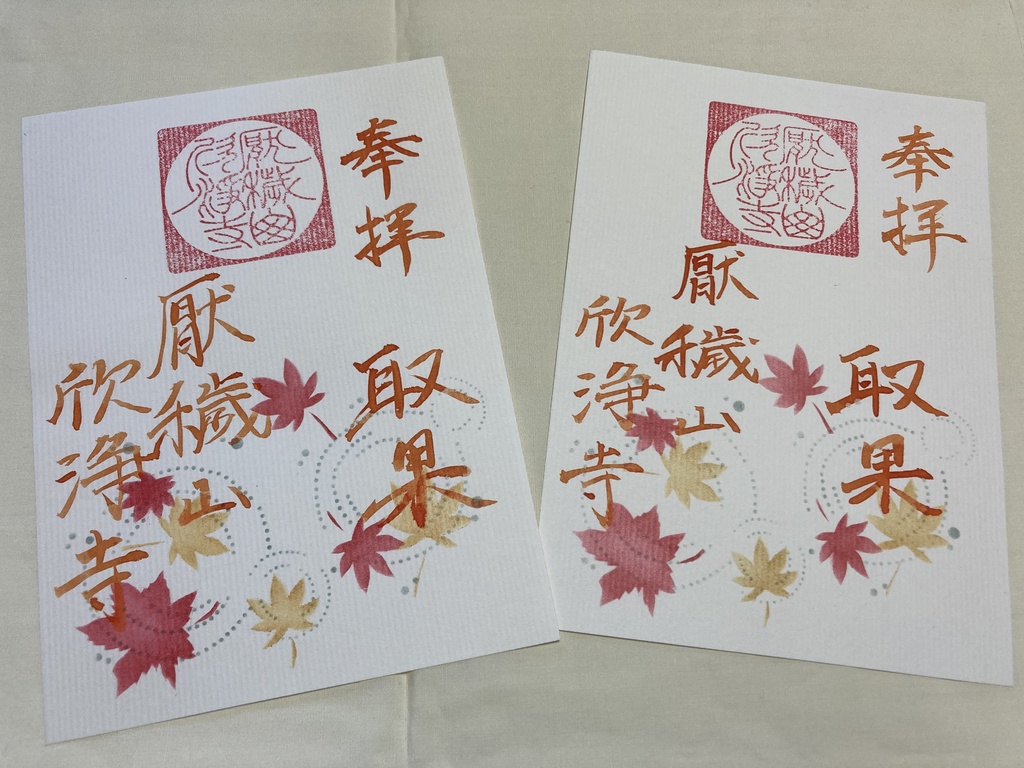 奉拝
取果
厭穢山
欣浄寺
厭穢山
欣浄寺
奉拝
取果
厭穢山
欣浄寺
厭穢山
欣浄寺